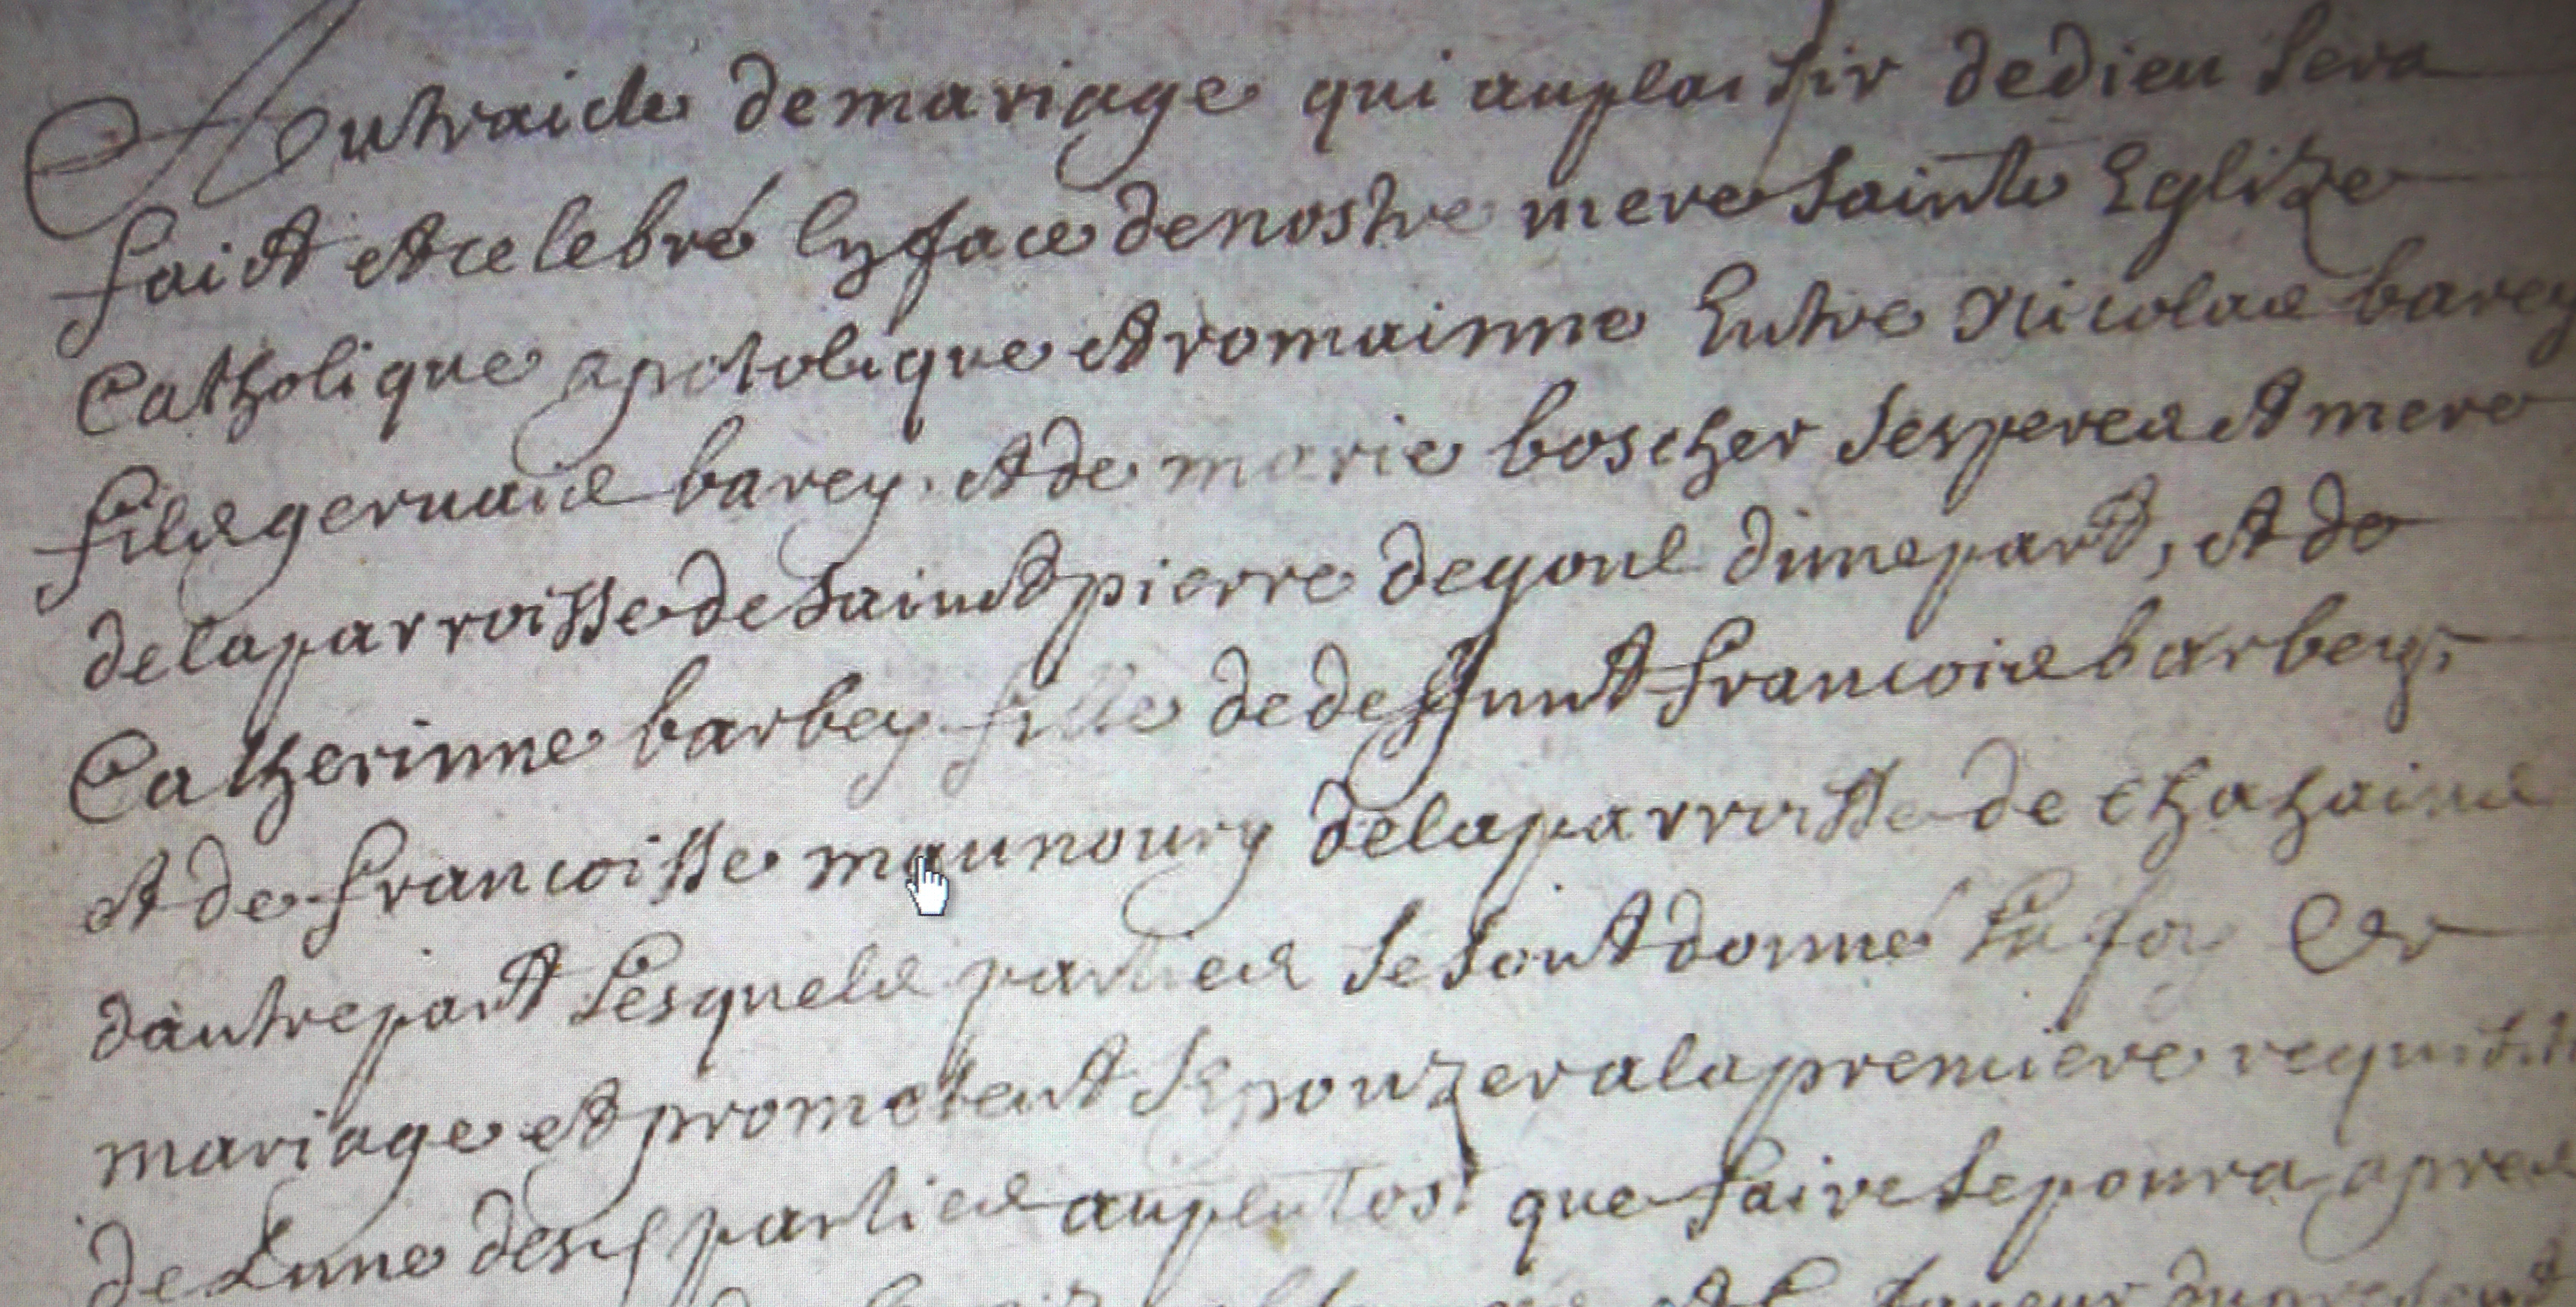 Au traicté de mariage qui au plaisir de dieu sera
faict et celebré en face de nostre mere sainte Eglize
Catholique apostolique et romainne Entre Nicolas barey
fils gervais barey et de marie boscher ses peres et mere
de la parroisse de sainct pierre de d'une part, et de
Catherinne barbey fille de deffunt francois barbey
et de francoisse maunoury de la parroisse de
d'autre part Lesquels parties se sont donné La foy
mariage et prometent Sepouzer a la premiere
de Lune desd parties au plutost que faire se poura apres